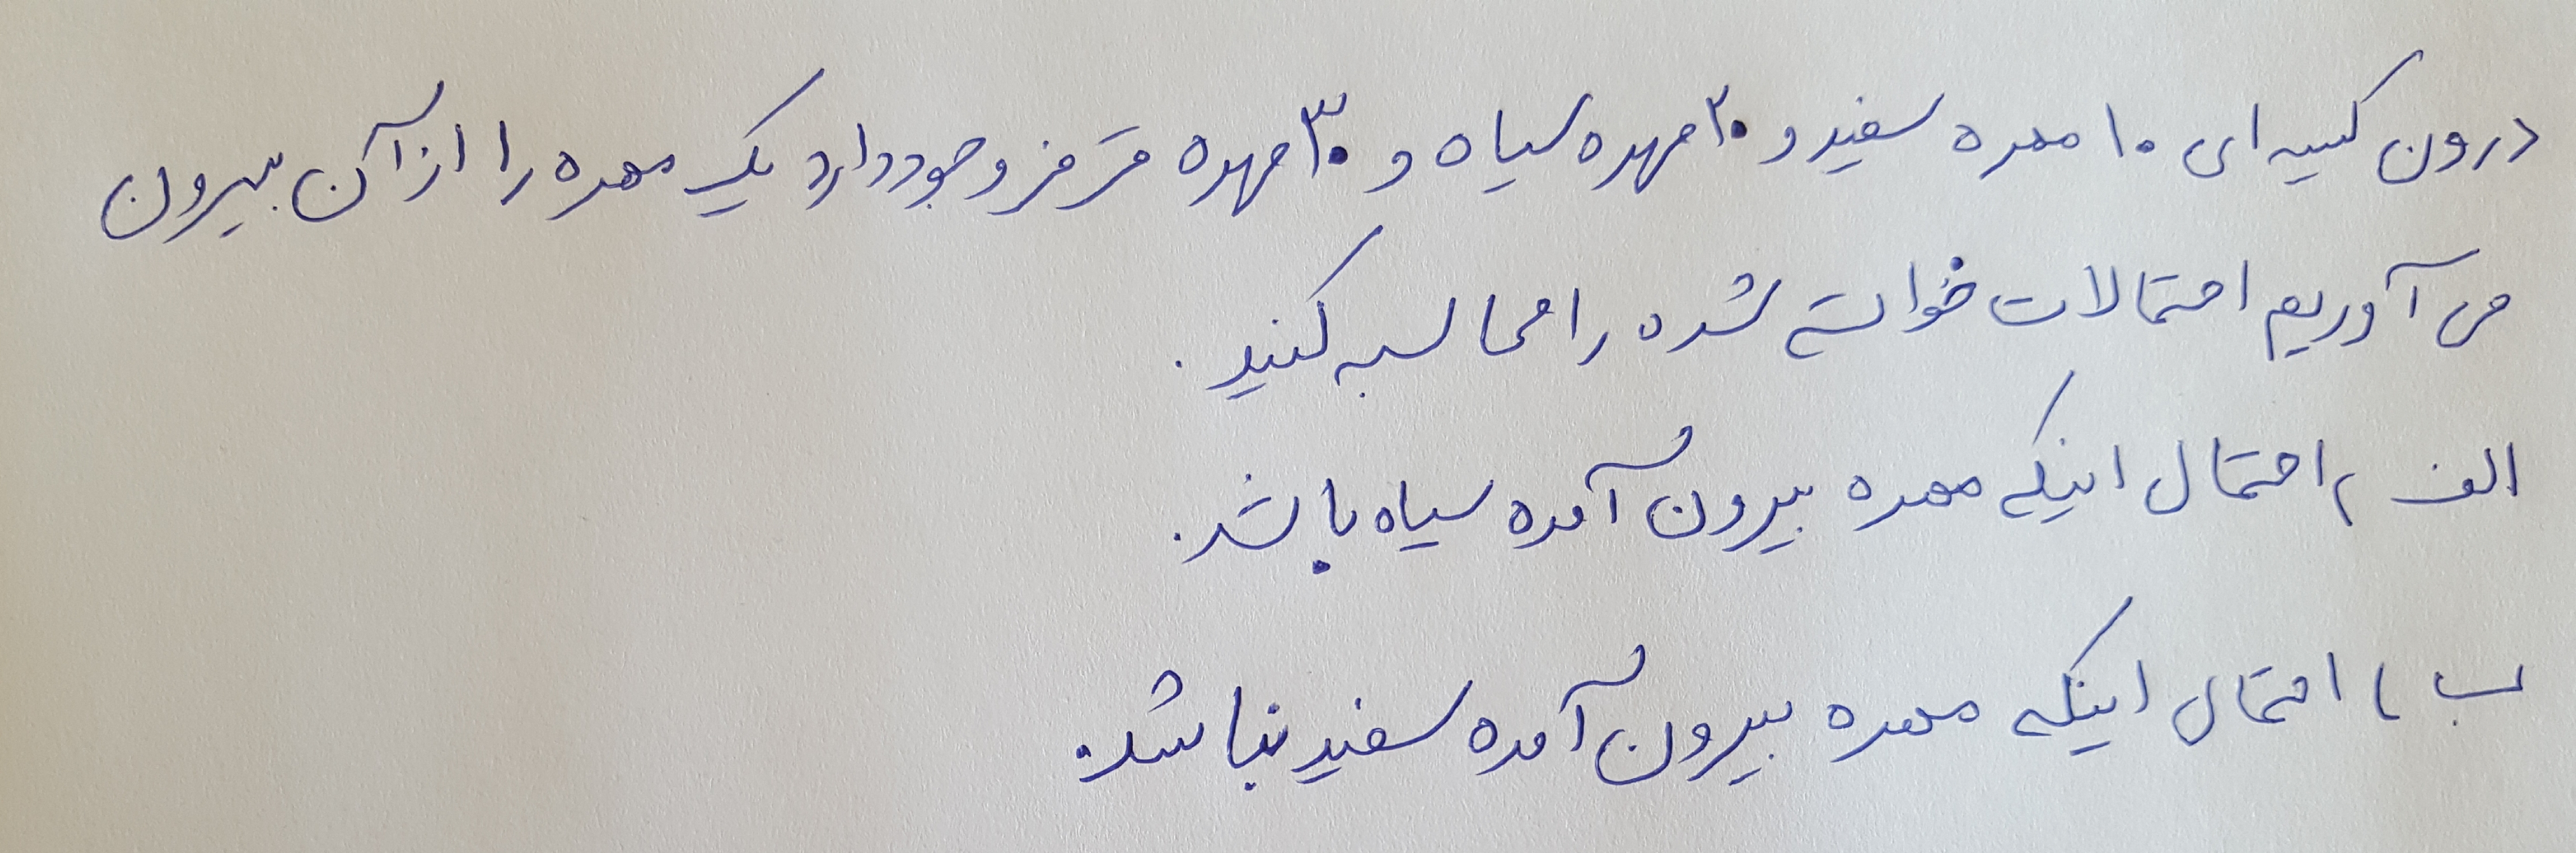 درون کیسه ای ۱۰ مهره سفید و ۲۰ مهره سیاه و ۳۰ مهره قرمز وجود دارد یک مهره را از آن بیرون
می آوریم احتمالات خواسته شده را محاسبه کنید .
الف ) احتمال اینکه مهره بیرون آمده سیاه باشد .
ب ) احتمال اینکه مهره بیرون آمده سفید نباشد .